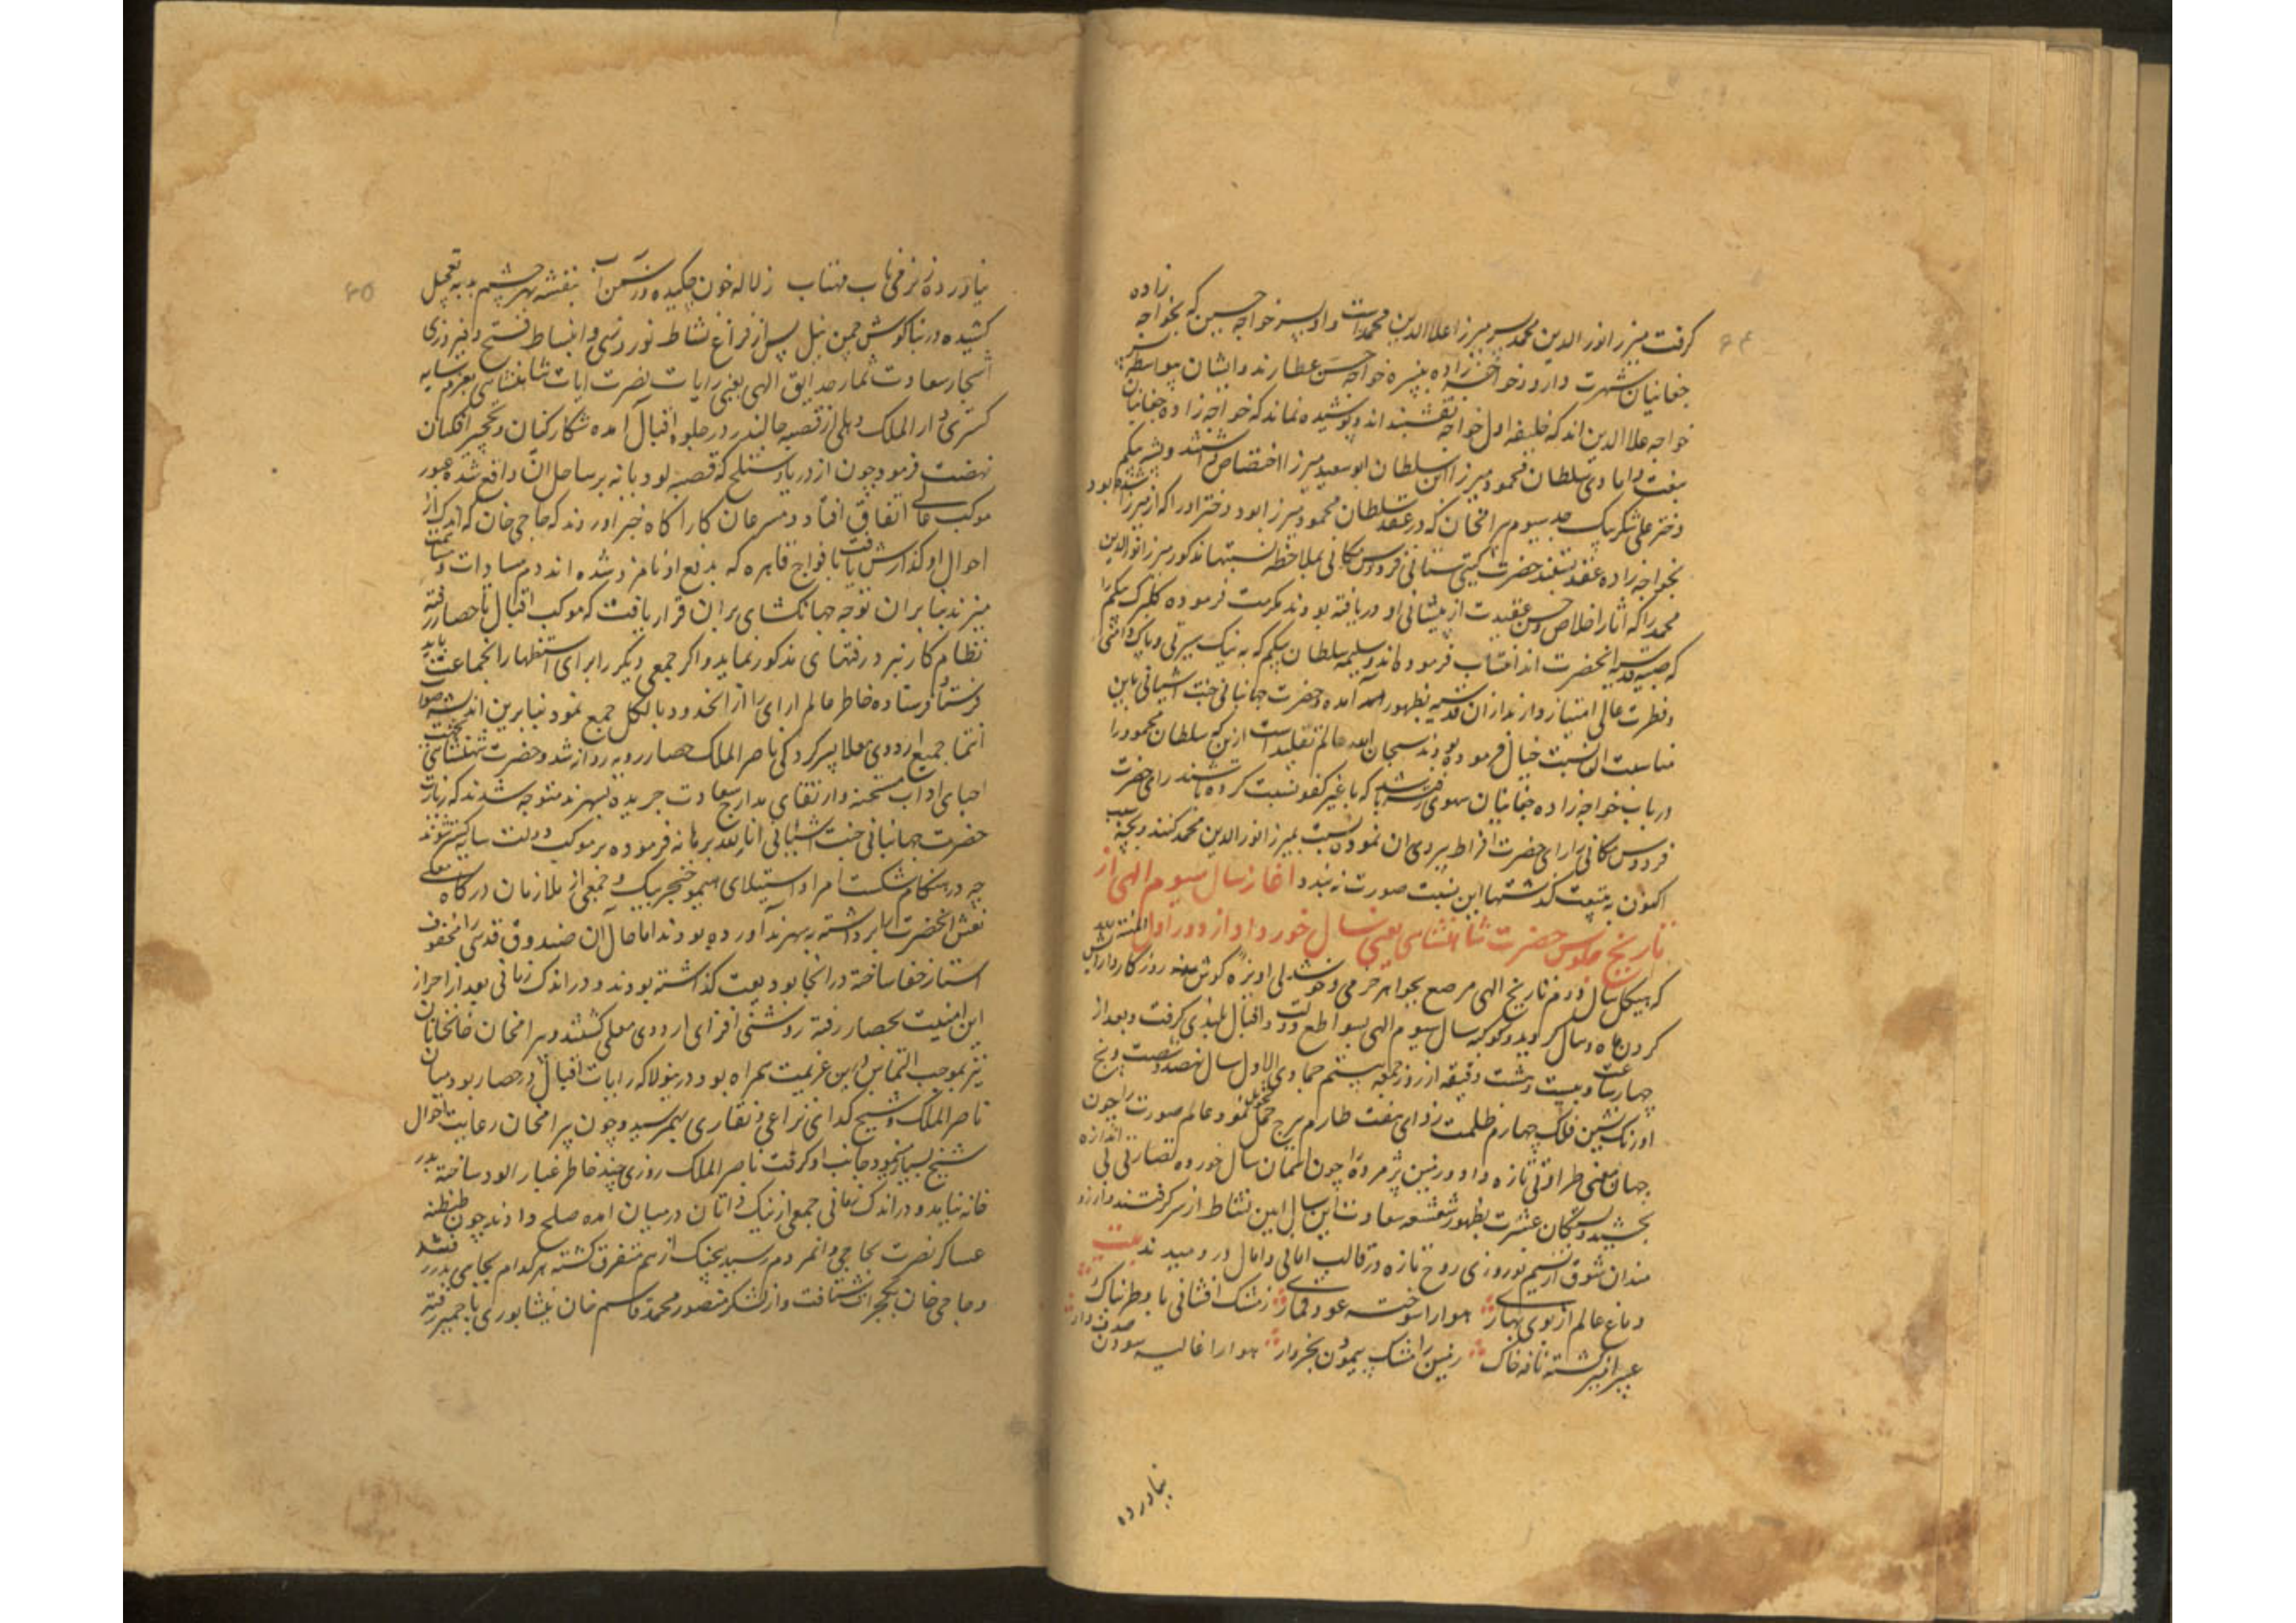 ۶۴
گرفت میرزا نورالدین محمد پسر میرزا علاالدین محمدست و او پسر خواجه حسین که بخواجه زاده
چغانیان شهرت دارد و خواجه زاده نبیره خواجه حسن عطارند و ایشان بیواسطه پسر
خواجه علاالدین اند که خلیفه اول خواجه نقشبند اند و پوشیده نماند که خواجه زاده چغانیان
بدامادی سلطان محمود میرزا ابن سلطان ابو سعید میرزا اختصاص داشتند و پشه بیکم
دختر علی شکر بیک جد سیوم بیرامخان که در عقد سلطان محمود میرزا بود دختر او را که از میرزا شده بود
بخواجه زاده عقد بستند حضرت گیتی ستانی فردوس مکانی بملاحظه نسبتها مذکور میرزا نورالدین
محمد را که آثار اخلاص و حسن عقیدت از پیشانی او دریافته بودند مکرمت فرموده گلبرگ بیکم را
که صبیه قدسیه انحضرت اند انتساب فرموده اند و سلیمه سلطان بیکم که به نیک سیرتی و پاک دامنی
و فطرت عالی امتیاز دارند ازان قدسیه بظهور آمده و حضرت جهانبانی جنت آشیانی باین
مناسبت این نسبت خیال فرموده بودند سبحان الله عالم تقلید است ازین که سلطان محمود را
در باب خواجه زاده چغانیان سهوی رفته باشد که با غیر کفو نسبت کرده باشند رای حضرت
فردوس مکانی را رای حضرت افراط پیروی ان نموده نسبت بمیرزا نورالدین محمد کنند و بچه سبب
اکنون به تبعیت گذشتها این نسبت صورت نه بندد آغاز سال سیوم الهی از
تاریخ جلوس حضرت شاهنشاهی یعنی سال خورداد از دور اول المنه لله
که هیکل سال دوم تاریخ الهی مرصع بجواهر خرمی و خوشدلی اویزه گوش روزگار و آرایش
گردن ماه و سال گردید و کوکبه سال سیوم الهی بسواطع دولت و اقبال بلندی گرفت و بعد از
چهار ساعت و بیست و هشت دقیقه از روز جمعه بیستم جمادی الاول سال نهصد و شصت و پنج
اورنگ نشین فلک چهارم ظلمت زدای هفت طارم ببرج حمل تحویل نمود و عالم صورت را چون
جهان معنی طراوتی تازه داد و زمین پژمرده را چون آسمان سال خورده نضارتی بی اندازه
بخشید و بستگان عشرت بظهور شعشعه سعادت این سال آیین نشاط از سر گرفتند و آرزو
مندان شوق از نسیم نوروزی روح تازه در قالب امانی و آمال در دمیدند بیت
دماغ عالم از بوی بهاری هوا را سوخته عود قماری ز مشک افشانی باد طربناک
عبیر آمیز گشته نافه خاک زمین را مشک پیمودن بخروار هوا را غالیه سودن صدف وار
نیاورده
۶۵
نیاورده نرکس تاب مهتاب ز لاله خون چکیده در سمن آب بنفشه بهر چشم بد به تعجیل
کشیده در بناگوش چمن نیل پس از فراغ نشاط نوروزی و انبساط فتح و فیروزی
اشجار سعادت ثمار حدایق الهی یعنی رایات نصرت آیات شاهنشاهی بعزم سایه
گستری دار الملک دهلی از قصبه جالندر در جلوه اقبال آمده شکار کنان و نخچیر افکنان
نهضت فرمود چون از دریاء ستلج که قصبه لودیانه بر ساحل ان واقع شده عبور
موکب عالی اتفاق افتاد و مسرعان کار آگاه خبر آوردند که حاجی خان که اندکی از
احوال او گذارش یافت با افواج قاهره که بدفع او نامزد شده اند دم مساوات و مسامت
میزند بنابران توجه جهانکشای بران قرار یافت که موکب اقبال تا حصار رفته
نظام کار نبرد رفتهای مذکور نماید و اگر جمعی دیگر را برای استظهار انجماعت باید
فرستاد فرستاده خاطر عالم آرای را از انحدود بالکل جمع نمود بنابرین اندیشه صواب
انتما جمیع اردوی معلا بسرکردگی ناصر الملک حصار رویه روانه شد و حضرت شهنشاهی بجهت
احیای آداب مستحسنه و ارتقای مدارج سعادت جریده بسهرند متوجه شدند که زیارت
حضرت جهانبانی جنت آشیانی انار الله برهانه فرموده بر موکب دولت سایه گستر شوند
چه در هنگام شکست امرا و استیلای هیمو خنجر بیک و جمعی از ملازمان درگاه معلی
نعش انحضرت را برداشته به سهرند آورده بودند اما حال آن صندوق قدسی را مخفوف
استار خفا ساخته در انجا بودیعت گذاشته بودند و در اندک زمانی بعد از احراز
این امنیت بحصار رفته روشنی افزای اردوی معلی گشتند و بیرامخان خانخانان
نیز بموجب التماس در این عزیمت همراه بود درینولا که رایات اقبال در حصار بود میان
ناصر الملک و شیخ گدای نزاعی و نقاری بهم رسید و چون بیرامخان رعایت احوال
شیخ بسیار نمود و جانب او گرفت ناصر الملک روزی چند خاطر غبار آلود ساخته بدر
خانه نیامد و در اندک زمانی جمعی از نیک ذاتان در میان آمده صلح دادند چون طنطنه
عساکر نصرت بحاجی و آنمردم رسید بیجنگ از هم متفرق گشته هر کدام بجایی بدر رفتند
و حاجی خان بگجرات شتافت و از لشکر منصور محمد قاسم خان نیشابوری باجمیر رفته